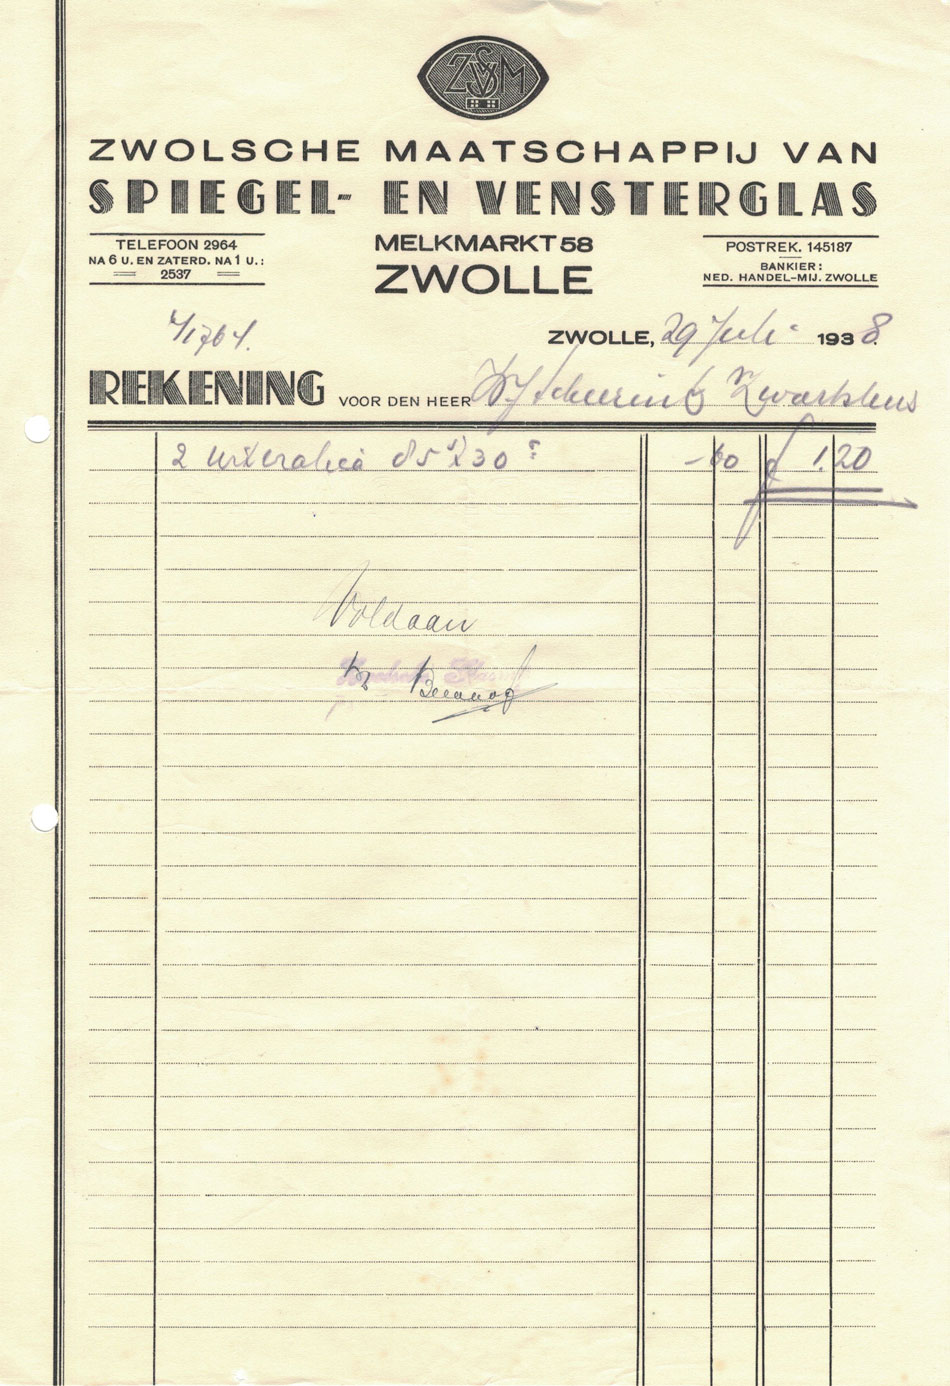 ZVSM
ZWOLSCHE MAATSCHAPPIJ VAN
SPIEGEL- EN VENSTERGLAS
TELEFOON 2964
NA 6 U. EN ZATERD. NA 1 U.:
2537
MELKMARKT 58
ZWOLLE
POSTREK. 145187
BANKIER:
NED. HANDEL-MIJ. ZWOLLE
ZWOLLE, 29 Juli 1938.
REKENING VOOR DEN HEER Scheerink Zwartsluis
2 85 x 30 -60 f 1.20
Voldaan